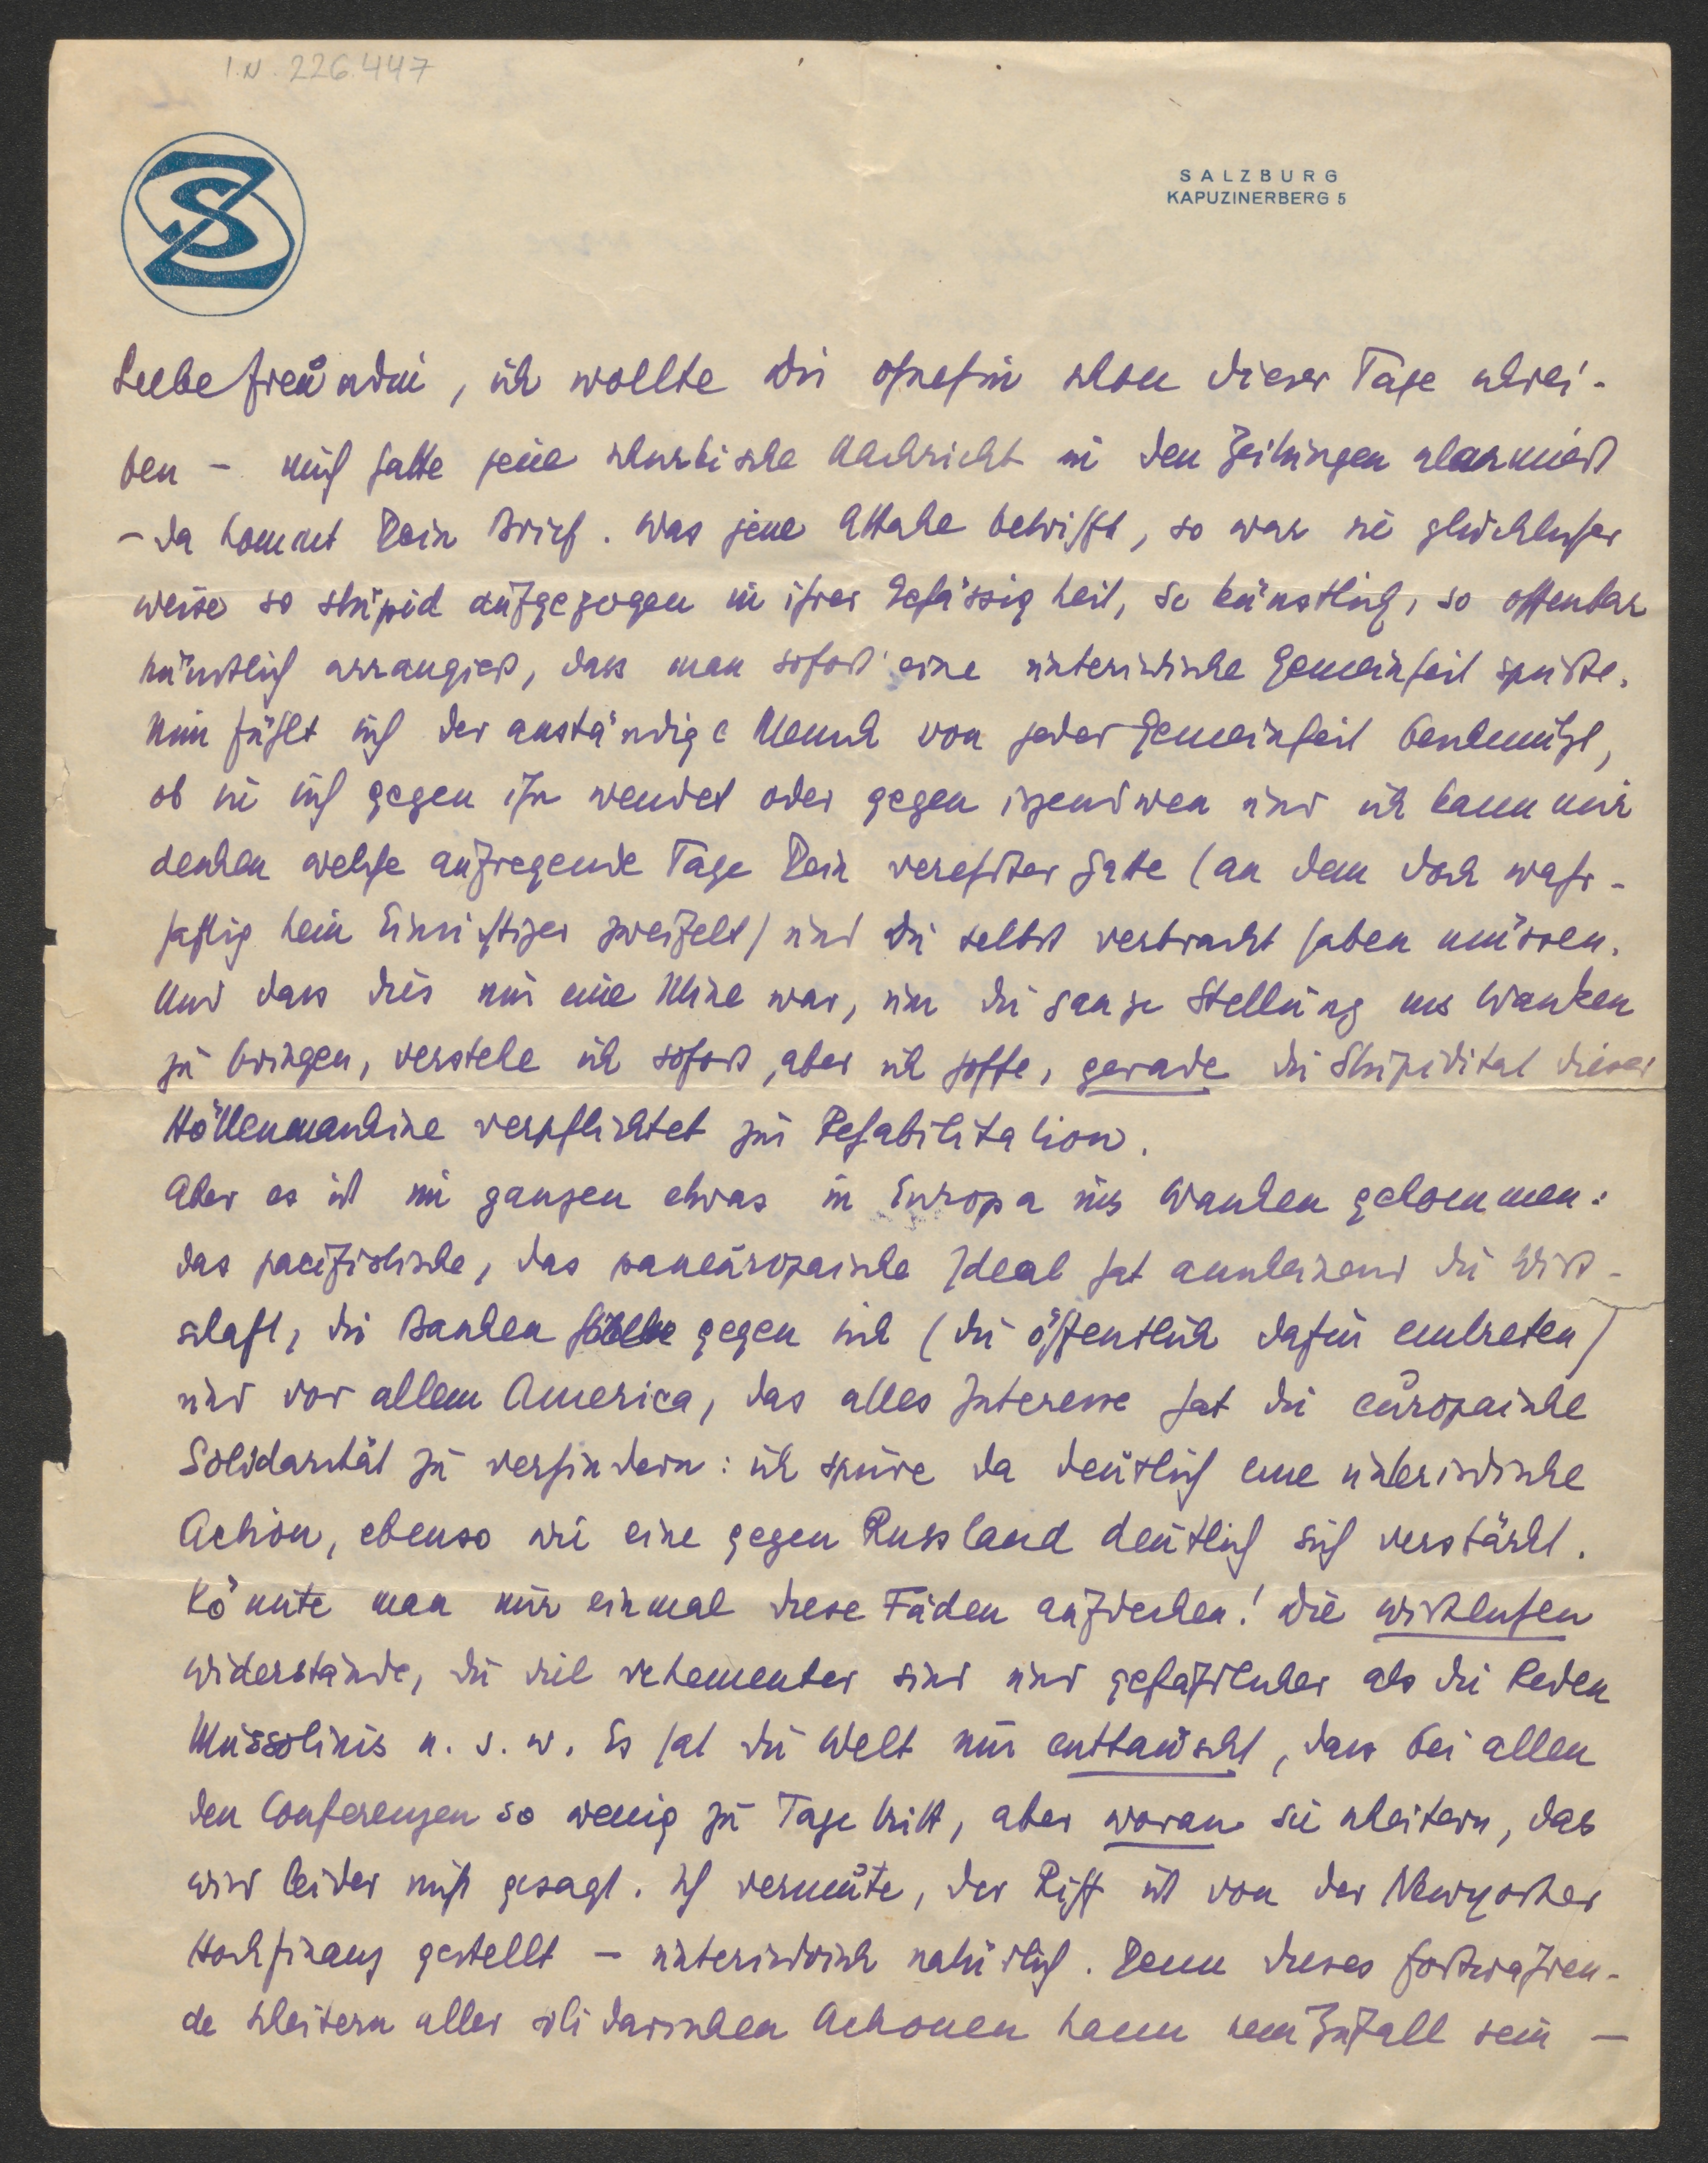 I.N. 226.447
SZ
SALZBURG
KAPUZINERBERG 5
Liebe Freundin, ich wollte Dir ohnehin schon dieser Tage schrei-
ben – mich hatte jene schurkische Nachricht in den Zeitungen alarmiert
– da kommt Dein Brief. Was jene Attake betrifft, so war sie glücklicher
weise so stupid aufgezogen in ihrer Gehässigkeit, so künstlich, so offenbar
künstlich arrangiert, dass man sofort eine unterirdische Gemeinheit spürte.
Nun fühlt sich der anständige Mensch von jeder Gemeinheit beschmutzt,
ob sie sich gegen ihn wendet oder gegen irgendwen und ich kann mir
denken welche aufregende Tage Dein verehrter Gatte (an dem doch wahr-
haftig kein Einsichtiger zweifelt) und Du selbst verbracht haben müssen.
Und dass dies nur eine Mine war, um die ganze Stellung ins Wanken
zu bringen, verstehe ich sofort, aber ich hoffe, gerade die Stupidität dieser
Höllenmaschine verpflichtet zur Rehabilitation.
Aber es ist im ganzen etwas in Europa ins Wanken gekommen:
das pacifistische, das paneuropäische Ideal hat anscheinend die Wirt-
schaft, die Banken gegen sich (die öffentlich dafür eintreten)
und vor allem America, das alles Interesse hat die europäische
Solidarität zu verhindern: ich spüre da deutlich eine unterirdische
Action, ebenso wie eine gegen Russland deutlich sich verstärkt.
Könnte man nur einmal diese Fäden aufdecken! Die wirklichen
Widerstände, die viel vehementer sind und gefährlicher als die Reden
Mussolinis u. s. w. Es hat die Welt nur enttäuscht, dass bei allen
den Conferenzen so wenig zu Tage tritt, aber woran sie scheitern, das
wird leider nicht gesagt. Ich vermute, der Riff ist von der Newyorker
Hochfinanz gestellt – unterirdisch natürlich. Denn dieses fortwähren-
de Scheitern aller solidarischen Actionen kann kein Zufall sein –